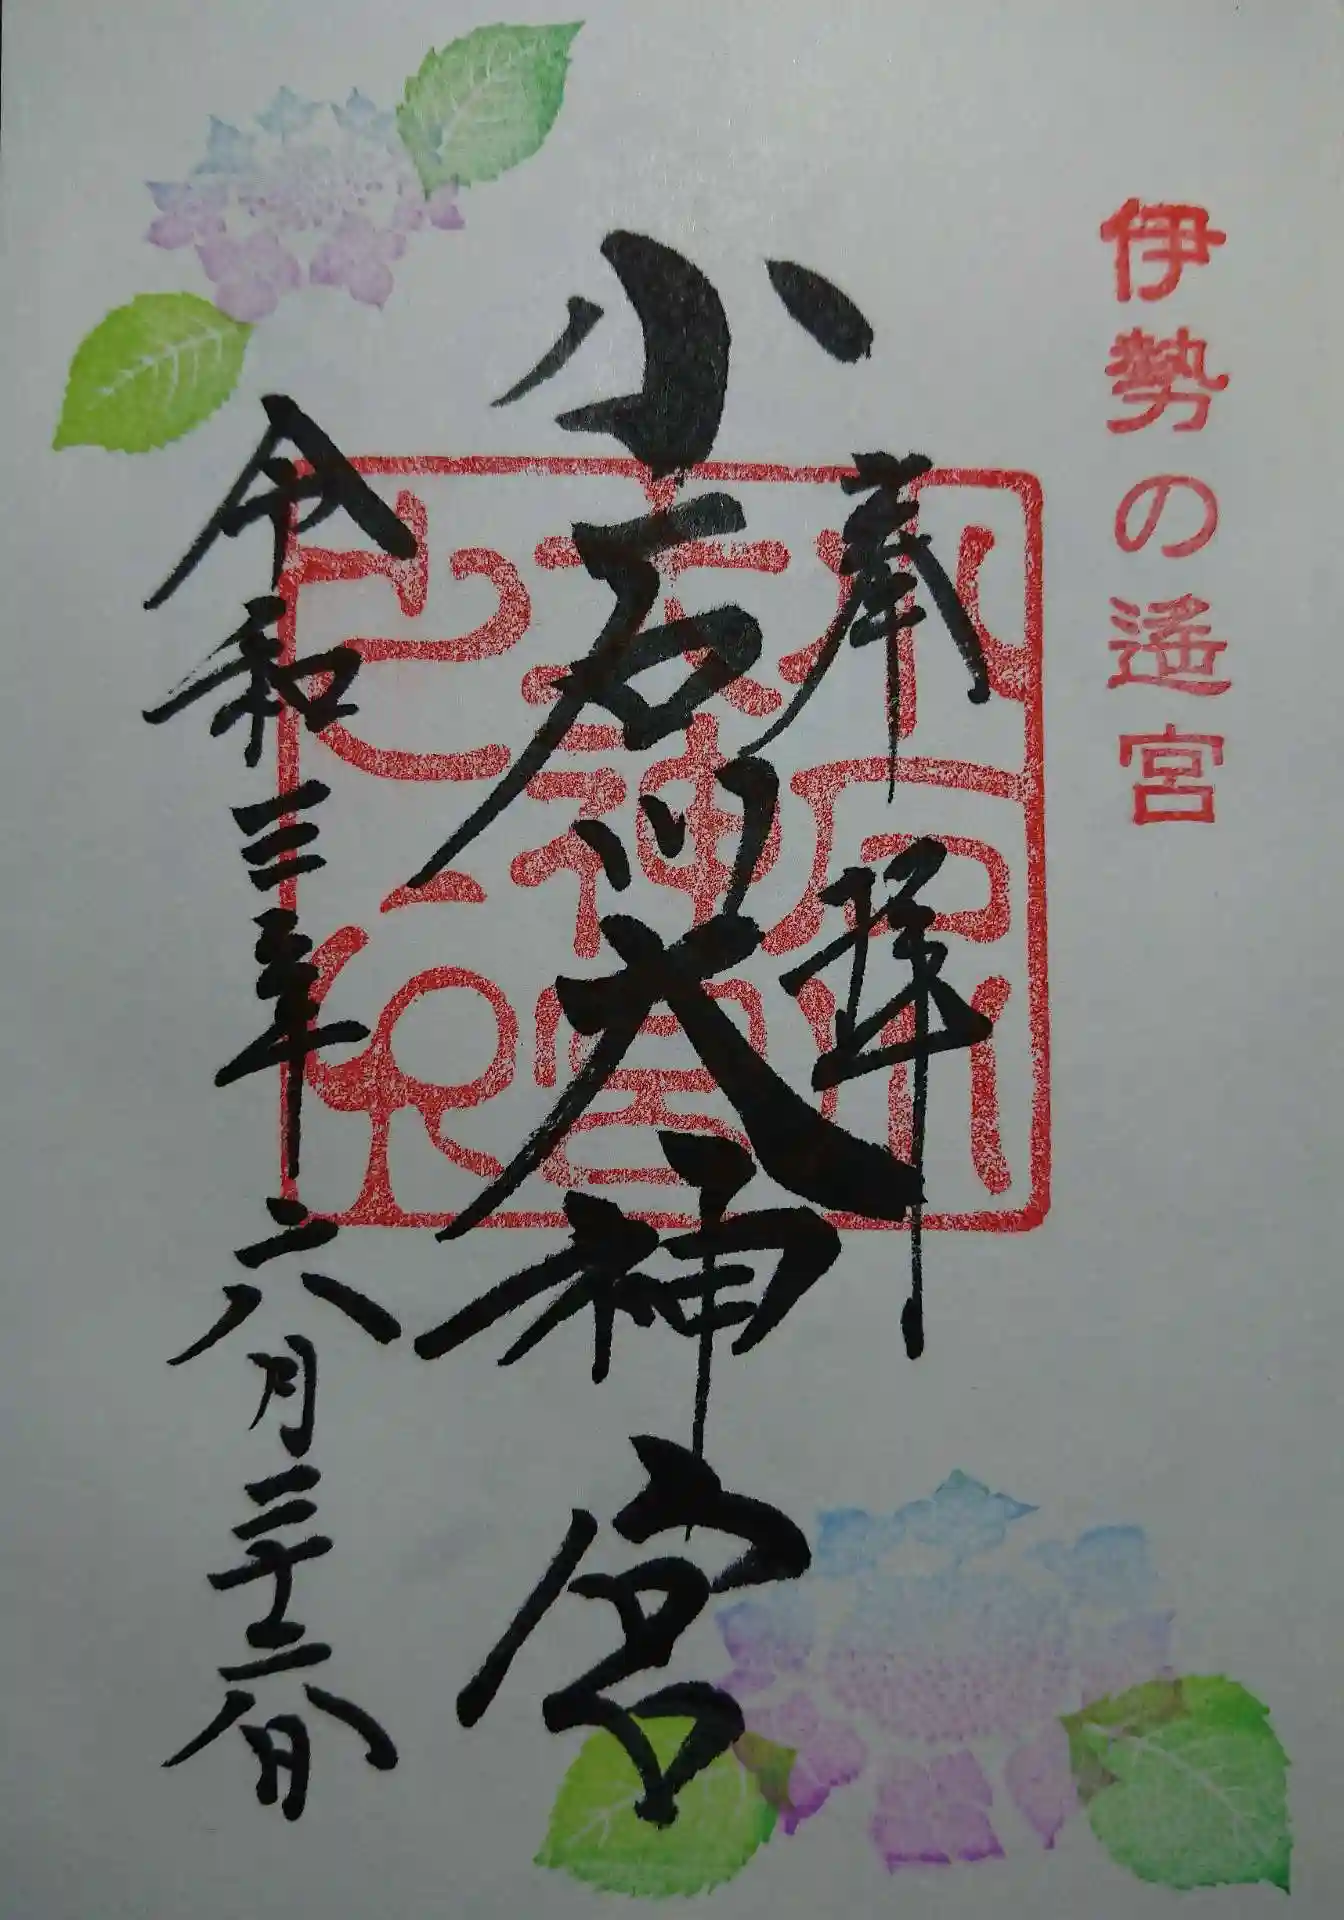 伊勢の遥宮
奉拝
小石川大神宮
小石川大神宮之印
令和三年六月二十六日